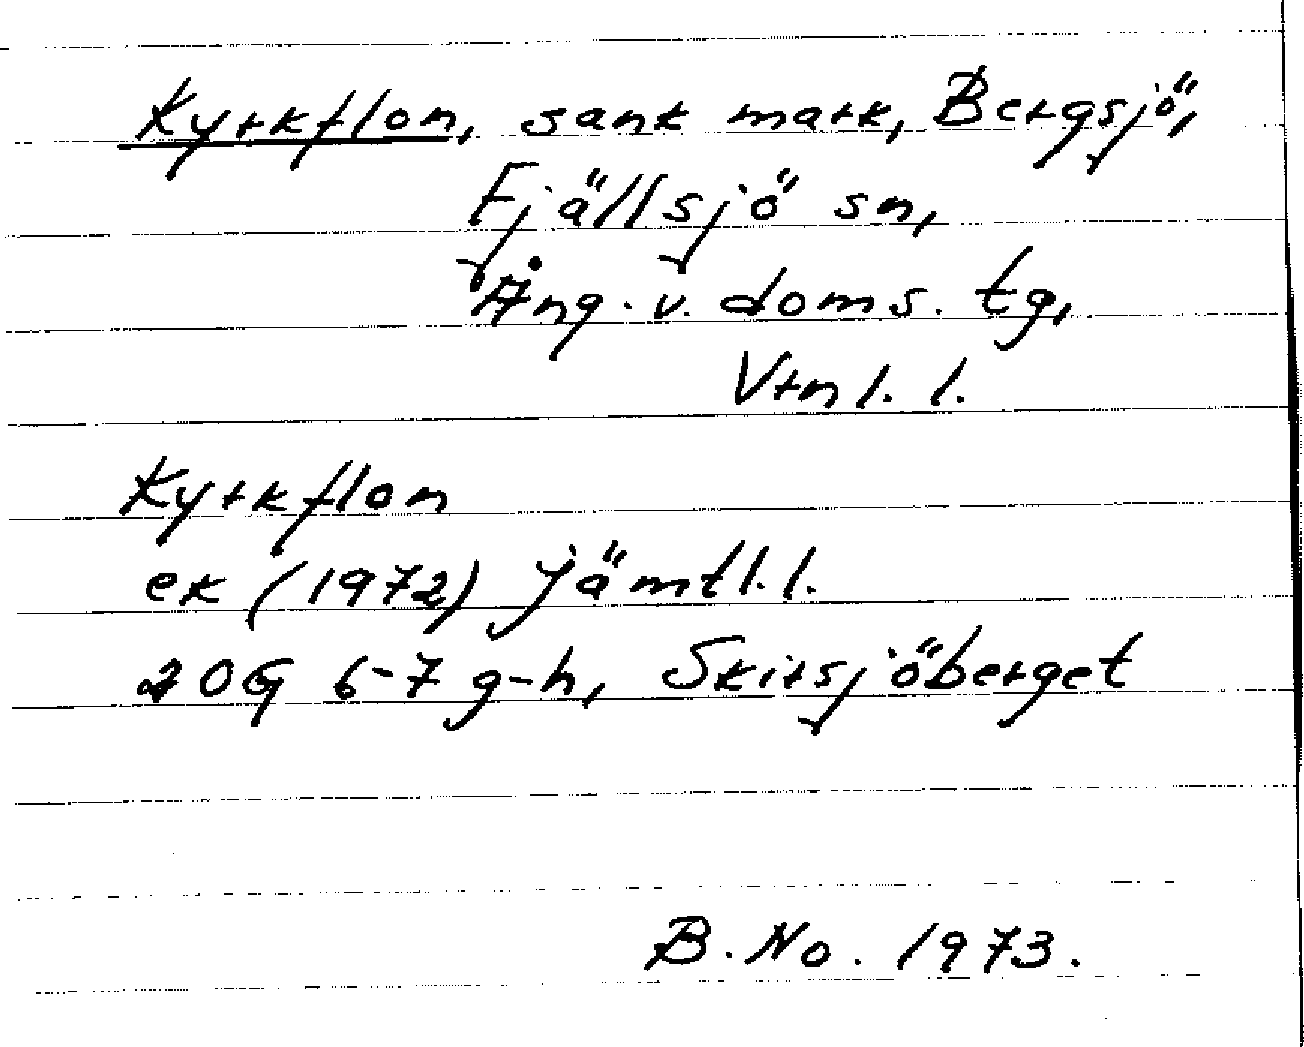 Kyrkflon, sank mark, Bergsjö,
Fjällsjö sn,
Ång. v. doms. tg,
Vrnl. l.
Kyrkflon
ek (1972) Jämtl. l.
20G 6-7 g-h, Skirsjöberget
B. No. 1973.